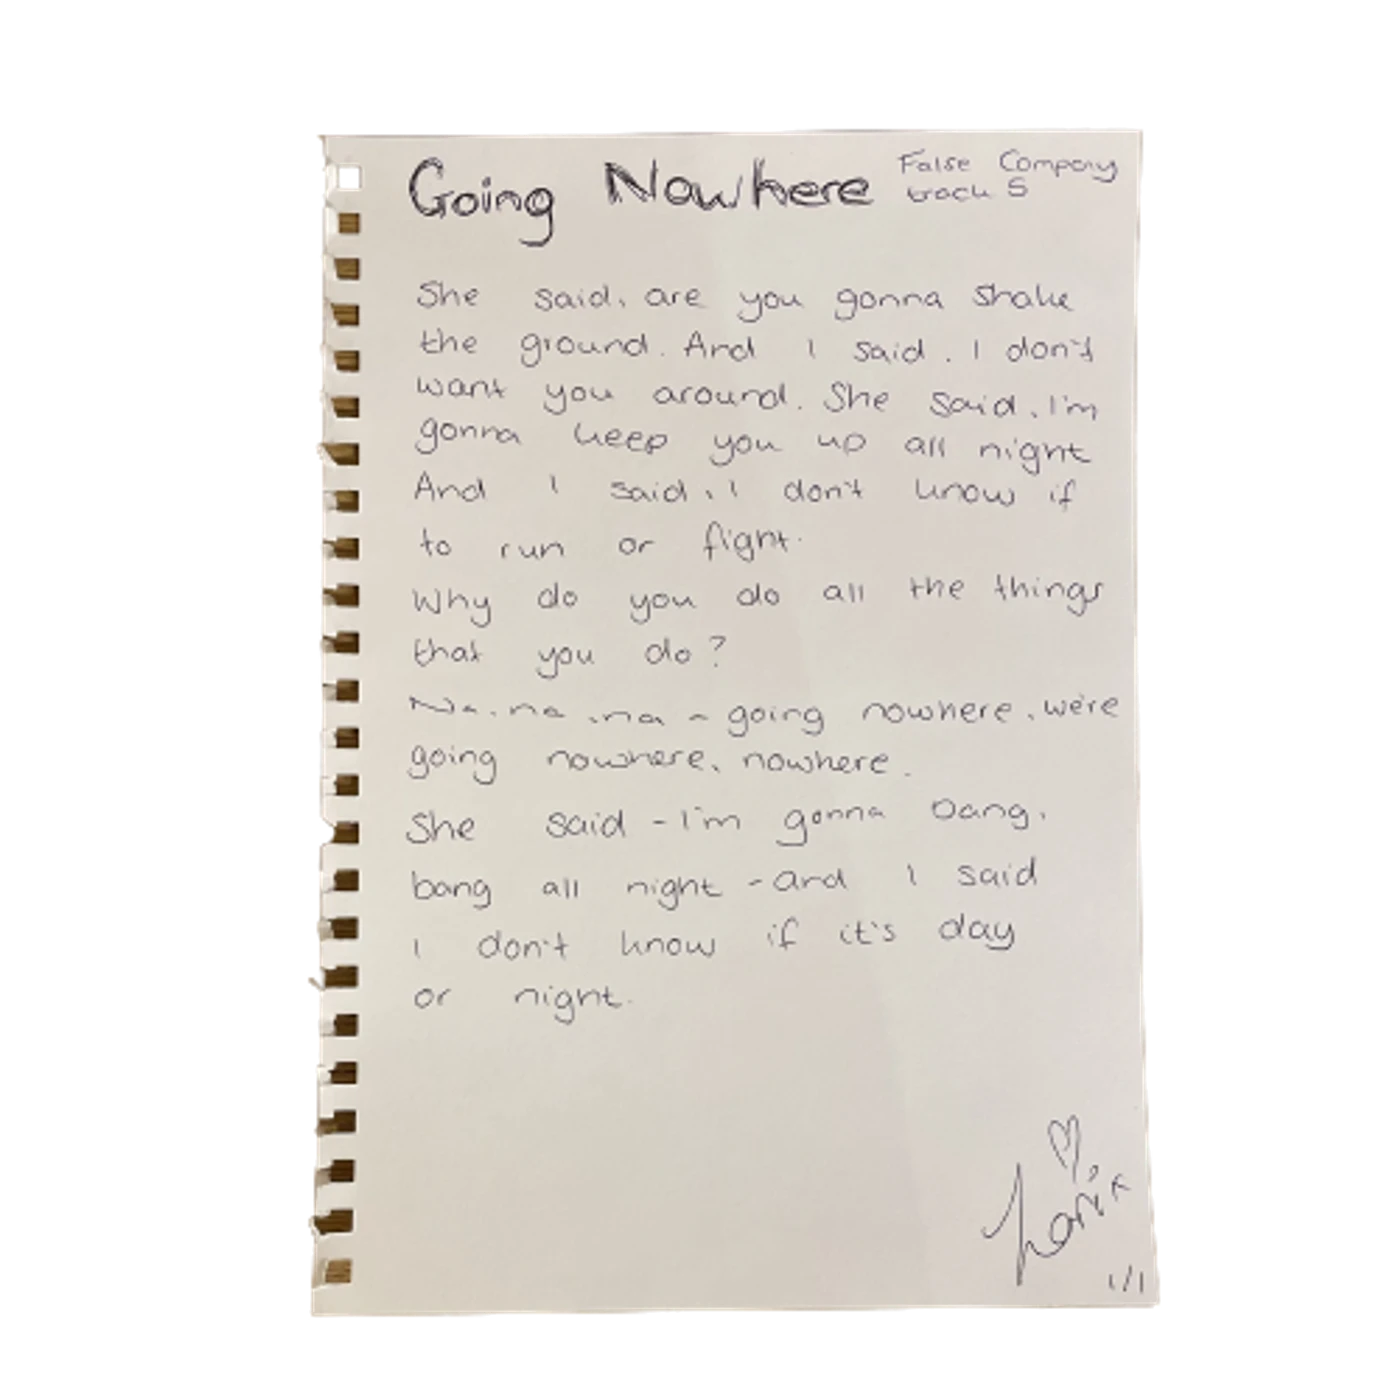 Going Nowhere
False Company
track 5
She said, are you gonna shake
the ground. And I said, I don't
want you around. She said, I'm
gonna keep you up all night
And I said, I don't know if
to run or fight.
Why do you do all the things
that you do?
Na, na, na - going nowhere, we're
going nowhere, nowhere.
She said - I'm gonna bang,
bang all night - and I said
I don't know if it's day
or night.
1/1